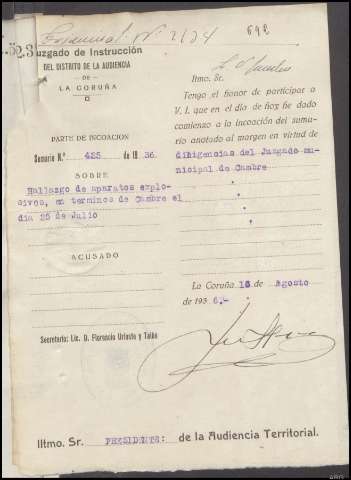 692
523
Juzgado de Instrucción
DEL DISTRITO DE LA AUDIENCIA
— DE —
LA CORUÑA
PARTE DE INCOACION
Sumario N.º 425 de 1936.
SOBRE
Hallazgo de aparatos explo-
civos, en terminos de Cambre el
dia 25 de Julio
ACUSADO
Secretario: Lic. D. Florencio Uriarte y Taibo
Iltmo. Sr.
Tengo el honor de participar a
V. I. que en el día de hoy he dado
comienzo a la incoación del suma-
rio anotado al margen en virtud de
diligencias del Juzgado mu-
nicipal de Cambre
La Coruña 16 de Agosto
de 1936.-
Iltmo. Sr. PRESIDENTE: de la Audiencia Territorial.